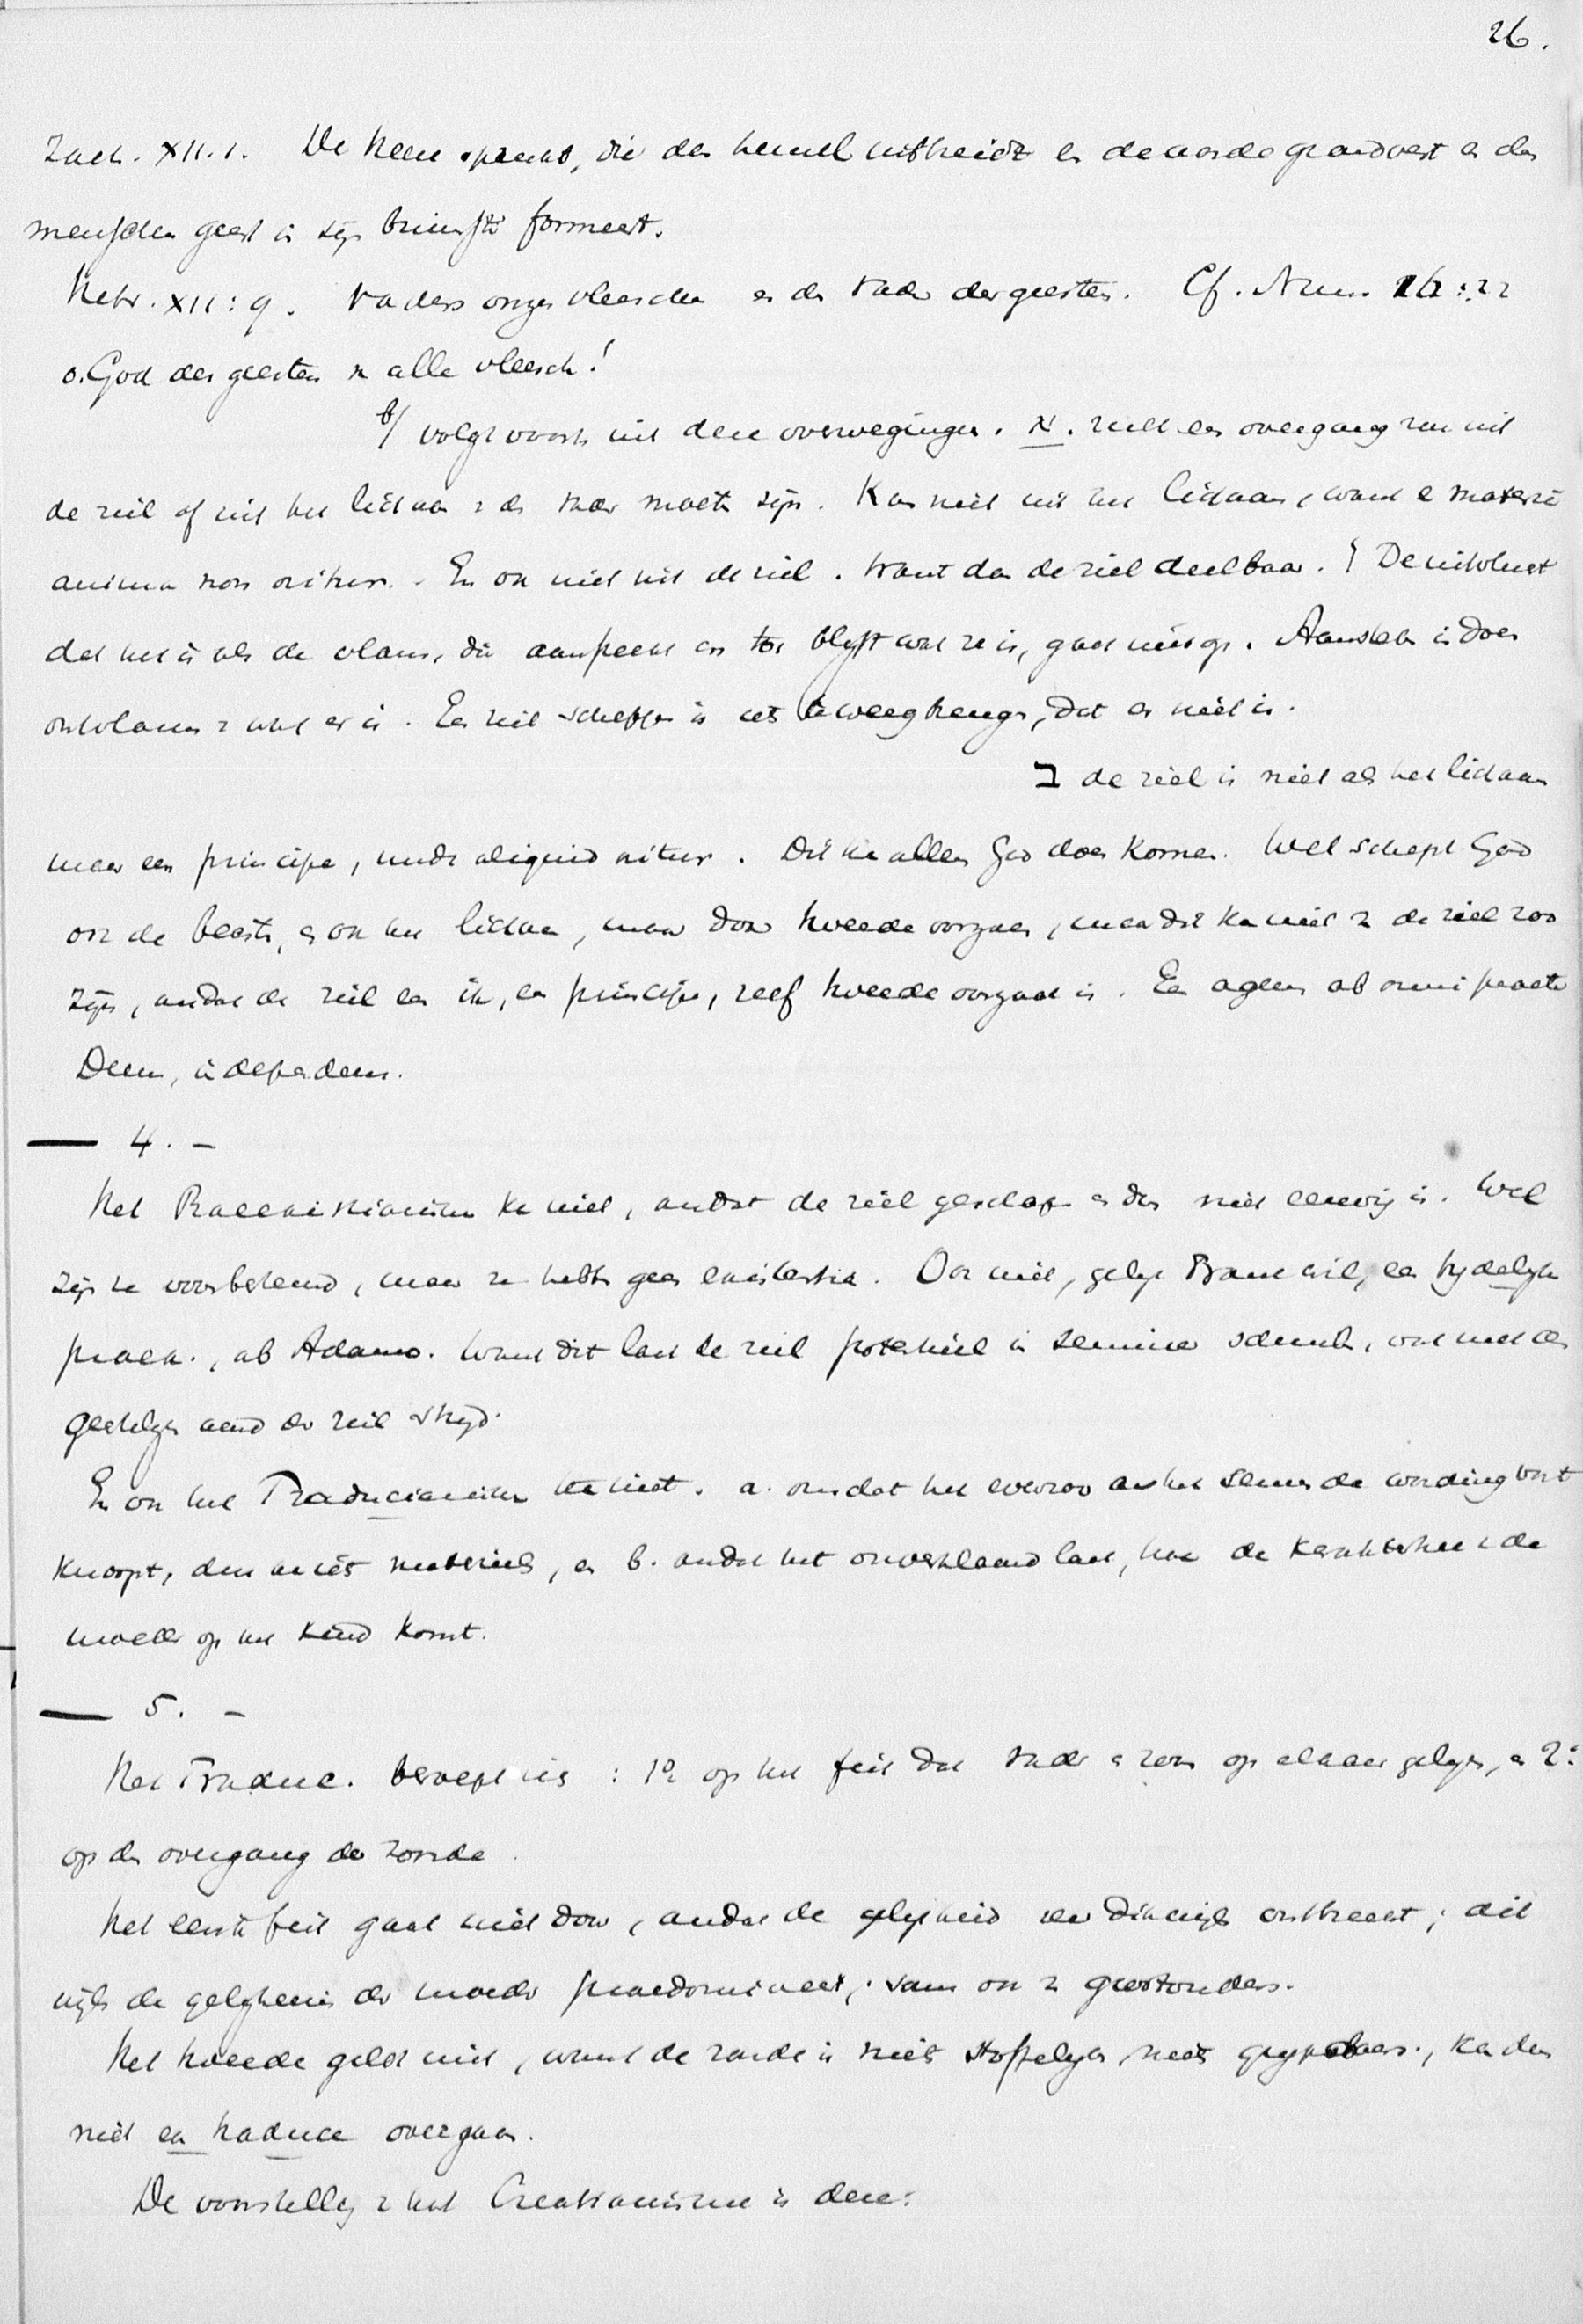 26.
Zach. XII.1. De Heere spreekt, die den hemel uitbreidt en de aarde grondvest en des
menschen geest in zijn binnenste formeert.
Hebr. XII: 9. vaders onzes vleesches en de Vader der geesten. Cf. Num 16:22
o. God der geesten v alle vleesch!
b/ volgt voorts uit deze overwegingen. א. zulk een overgang zou uit
de ziel of uit het lichaam v de vader moeten zijn. Kan niet uit het lichaam, want e materie
anima non oritur. - En ook niet uit de ziel. Want dan de ziel deelbaar. De uitvlucht
dat het is als de vlam, die aansteekt en toch blijft wat ze is, gaat niet op. Aansteken is doen
ontvlammen v wat er is. Een ziel scheppen is iets teweegbrengen, dat er niet is.
ב de ziel is niet als het lichaam
maar een principe, unde aliquid oritur. Dit kan alleen God doen komen. Wel schept God
ook de beesten, en ook het lichaam, maar door tweede oorzaken, maar dit kan niet v de ziel zoo
zijn, omdat de ziel een ik, een principe, zelf tweede oorzaak is. Een agens ab omni praeter
Deum, independens.
— 4. -
Het Praeexistianisme kan niet, omdat de ziel geschapen en dus niet eeuwig is. Wel
zijn ze voorbestemd, maar ze hebben geen existentia. Ook niet, gelijk wil, een tijdelijke
praeex., ab Adamo. Want dit laat de ziel potentieel in semine schuilen, wat met den
geestelijken aard der ziel strijdt.
En ook het Traducianisme kan niet. a. omdat het evenzoo aan het semen de wording vast
knoopt, dus aan iets materieels, en b. omdat het onverklaard laat, hoe de karaktertrek v de
moeder op het kind komt.
— 5. -
Het Traduc. beroept zich : 1o op het feit dat vader en zoon op elkaar gelijken, en 2o
op den overgang der zonde.
Het eerste feit gaat niet door, omdat de gelijkheid zeer dikwijls ontbreekt; dik
wijls de gelijkheid der moeder praedomineert; soms ook v grootouders.
Het tweede geldt niet, want de zonde is niets stoffelijks, niets grijpbaars, kan dus
niet ex traduce overgaan.
De voorstelling v het Creatianisme is deze: